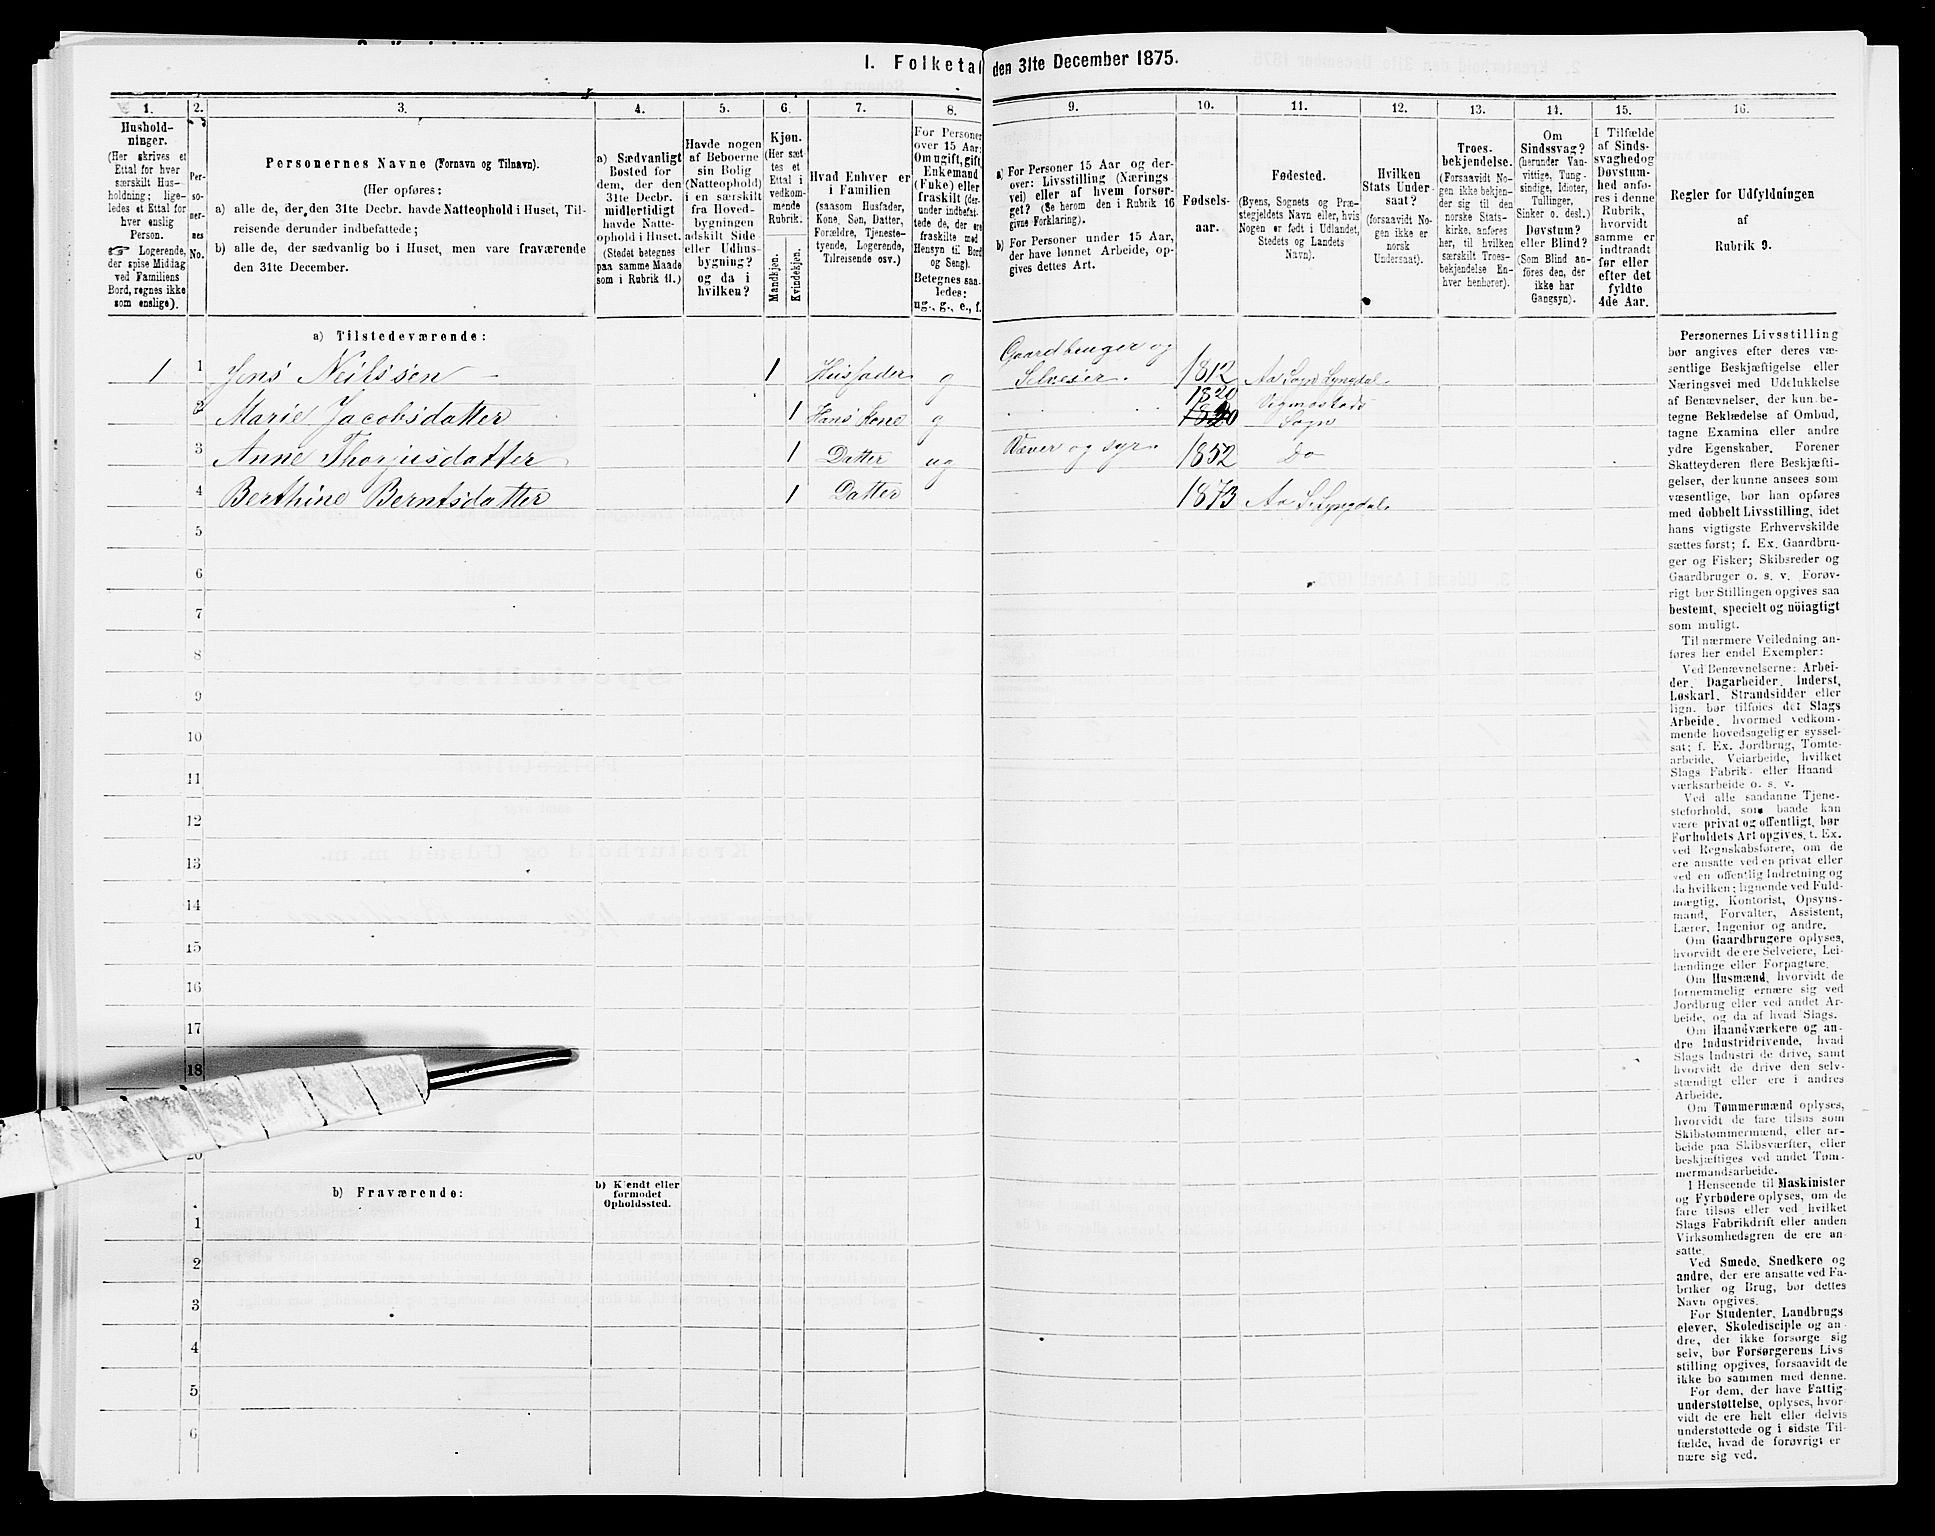 I. Folketal den 31te December 1875.
1. 2. 3. 4. 5. 6. 7. 8. 9. 10. 11. 12. 13. 14. 15. 16.
Hushold-
ninger.
(Her skrives et
Ettal for hver
særskilt Hus-
holdning; lige-
ledes et Ettal for
hver enslig
Person.
☞ Logerende,
der spise Middag
ved Familiens
Bord, regnes ikke
som enslige).
Per-
so-
ner-
nes
No.
Personernes Navne (Fornavn og Tilnavn).
(Her opføres:
a) alle de, der den 31te Decbr. havde Natteophold i Huset, Til-
reisende derunder indbefattede;
b) alle de, der sædvanlig bo i Huset, men vare fraværende
den 31te December.
a) Sædvanligt
Bosted for
dem, der den
31te Decbr.
midlertidigt
havde Natte-
ophold i Huset.
(Stedet betegnes
paa samme Maade
som i Rubrik 11.)
Havde nogen
af Beboerne
sin Bolig
(Natteophold)
i en særskilt
fra Hoved-
bygningen
adskilt Side
eller Udhus-
bygning?
og da i
hvilken?
Kjøn.
(Her sæt
tes et
Ettal i
vedkom-
mende
Rubrik.
Mandkjøn.
Kvindekjøn.
Hvad Enhver er
i Familien
(saasom Husfader,
Kone, Søn, Datter,
Forældre, Tjeneste-
tyende, Logerende,
Tilreisende osv.)
For Personer
over 15 Aar:
Om ugift, gift,
Enkemand
(Fuke) eller
fraskilt (der-
under indbefat-
tede de, der ere
fraskilte med
Hensyn til Bord
og Seng).
Betegnes saa-
ledes:
ug., g., e., f.
a) For Personer 15 Aar og der-
over: Livsstilling (Nærings
vei) eller af hvem forsør-
get? (Se herom den i Rubrik 16
givne Forklaring).
b) For Personer under 15 Aar,
der have lønnet Arbeide, op-
gives dettes Art.
Fødsels-
aar.
Fødested.
(Byens, Sognets og Præ-
stegjeldets Navn eller, hvis
Nogen er født i Udlandet,
Stedets og Landets
Navn).
Hvilken
Stats Under-
saat?
(forsaavidt No-
gen ikke er
norsk
Undersaat).
Troes-
bekjendelse.
(Forsaavidt No-
gen ikke bekjen-
der sig til den
norske Stats-
kirke, anføres
her, til hvilken
særskilt Troes-
bekjendelse En-
hver henhører).
Om
Sindssvag?
(herunder Van-
vittige, Tung-
sindige, Idioter,
Tullinger,
Sinker o. desl.)
Døvstum?
eller Blind?
(Som Blind an-
føres den, der
ikke har
Gangsyn).
I Tilfælde
af Sinds-
svaghed og
Døvstum-
hed anfø-
res i denne
Rubrik,
hvorvidt
samme er
indtraadt
før eller
efter det
fyldte
4de Aar.
Regler for Udfyldningen
af
Rubrik 9.
a) Tilstedeværende:
1 1 Jens Neilssøn 1 Husfader g Gaardbruger og Selveier. 1812 Aa Sogn Lyngdal.
2 Marie Jacobsdatter 1 Hans Kone g 1820 Sogn
3 Anne Thorjusdatter 1 Datter ug Væver og syr. 1852 Do
4 Berthine Berntsdatter 1 Datter 1873 Aa S. Lyngdal.
5
6
7
8
9
10
11
12
13
14
15
16
17
18
20
b) Fraværende:
b) Kjendt eller
formodet
Opholdssted.
1
2
3
4
5
6
Personernes Livsstilling
bør angives efter deres væ-
sentlige Beskjæftigelse eller
Næringsvei med Udelukkelse
af Benævnelser, der kun be-
tegne Beklædelse af Ombud,
tagne Examina eller andre
ydre Egenskaber. Forener
Skatteyderen flere Beskjæfti-
gelser, der kunne ansees som
væsentlige, bør han opføres
med dobbelt Livsstilling, idet
hans vigtigste Erhvervskilde
sættes først; f. Ex. Gaardbru-
ger og Fisker; Skibsreder og
Gaardbruger o. s. v. Forøv-
rigt bør Stillingen opgives saa
bestemt, specielt og nöiagtigt
som muligt.
Til nærmere Veiledning an-
føres her endel Exempler:
Ved Benævnelserne: Arbei-
der, Dagarbeider, Inderst,
Løskarl, Strandsidder eller
lign. bør tilføies det Slags
Arbeide, hvormed vedkom-
mende hovedsagelig er syssel-
sat; f. Ex. Jordbrug, Tomte-
arbeide, Veiarbeide, hvilket
Slags Fabrik- eller Haand
værksarbeide o. s. v.
Ved alle saadanne Tjene-
steforhold, som baade kan
være privat og offentligt, bør
Forholdets Art opgives, t. Ex.
ved Regnskabsførere, om de
ere ansatte ved en privat eller
ved en offentlig Indretning og
da hvilken; lignende ved Fuld-
mægtig, Kontorist, Opsyns-
mand, Forvalter, Assistent,
Lærer, Ingeniør og andre.
Om Gaardbrugere oplyses,
hvorvidt de ere Selveiere, Lei-
lændinge eller Forpagtere.
Om Husmænd, hvorvidt de
fornemmelig ernære sig ved
Jordbrug eller ved andet Ar-
beide, og da af hvad Slags.
Om Haandværkere og an-
dre Industridrivende, hvad
Slags Industri de drive, samt
hvorvidt de drive den selv-
stændigt eller ere i andres
Arbeide.
Om Tømmermænd oplyses,
hvorvidt de fare tilsøs som
Skibstømmermænd, eller ar-
beide paa Skibsværfter, eller
beskjæftiges ved andet Tøm-
mermandsarbeide.
I Henseende til Maskinister
og Fyrbødere oplyses, om de
fare tilsøs eller ved hvilket
Slags Fabrikdrift eller anden
Virksomhedsgren de ere an-
satte.
Ved Smede, Snedkere og
andre, der ere ansatte ved Fa-
briker og Brug, bør dettes
Navn opgives.
For Studenter, Landbrugs
elever, Skoledisciple og an-
dre, der ikke forsørge sig
selv, bør Forsørgerens Livs
stilling opgives, forsaavidt de
ikke bo sammen med denne.
For dem, der have Fattig
understøttelse, oplyses, hvor-
vidt de ere helt eller delvis
understøttede og i sidste Til-
fælde, hvad de forøvrigt er
nære sig ved.